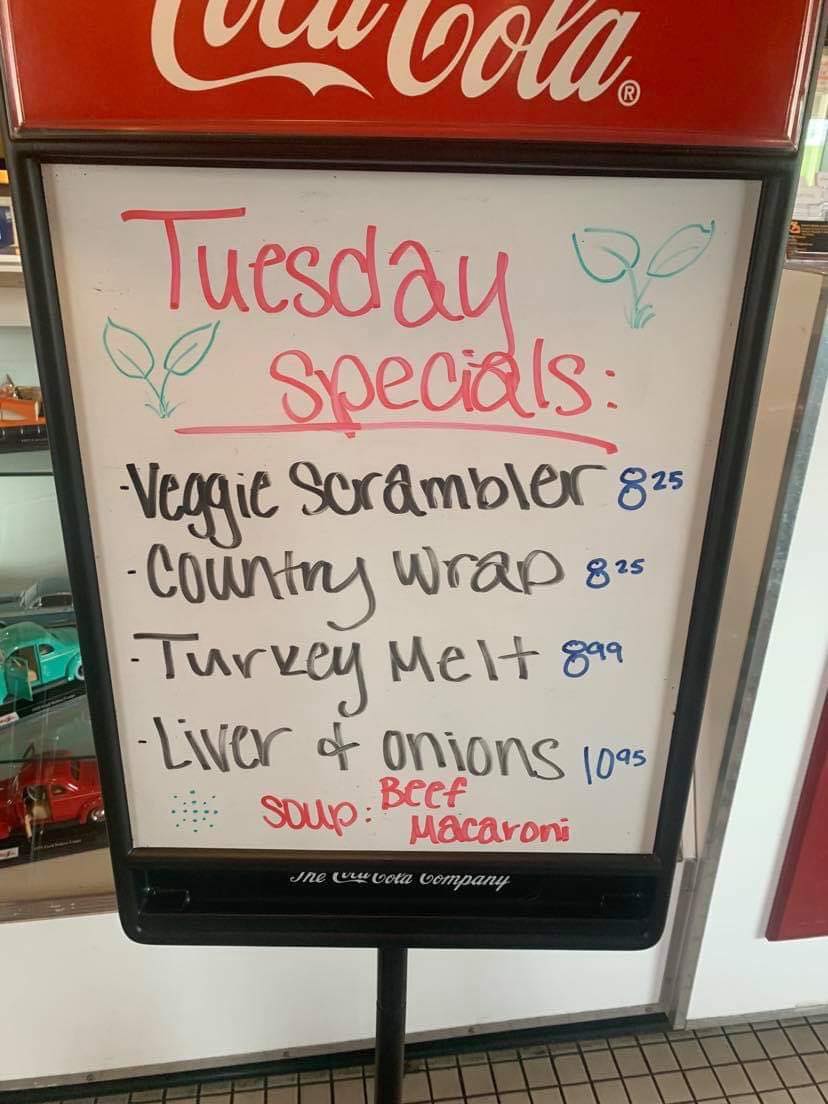 Coca-Cola®
Tuesday
Specials:
-Veggie Scrambler 8 25
-Country Wrap 8 25
-Turkey Melt 8 99
-Liver & onions 10 95
Soup: Beef
Macaroni
The Coca-Cola Company